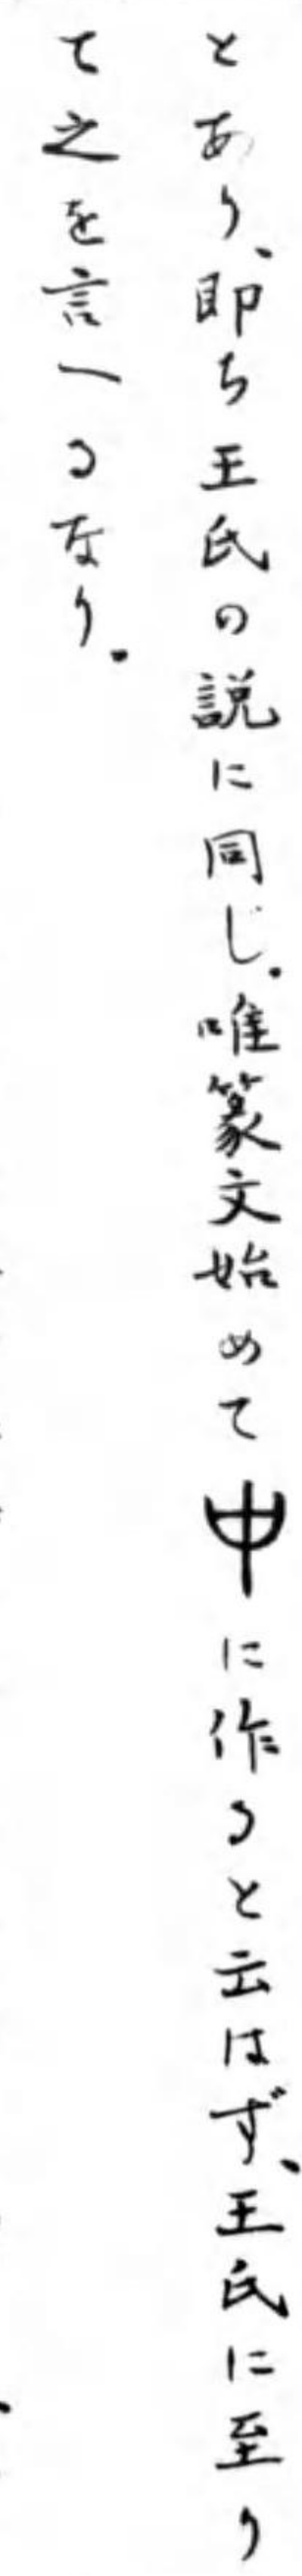 とあり、即ち王氏の説に同じ。唯篆文始めて中に作ると云はず、王氏に至り
て之を言へるなり。